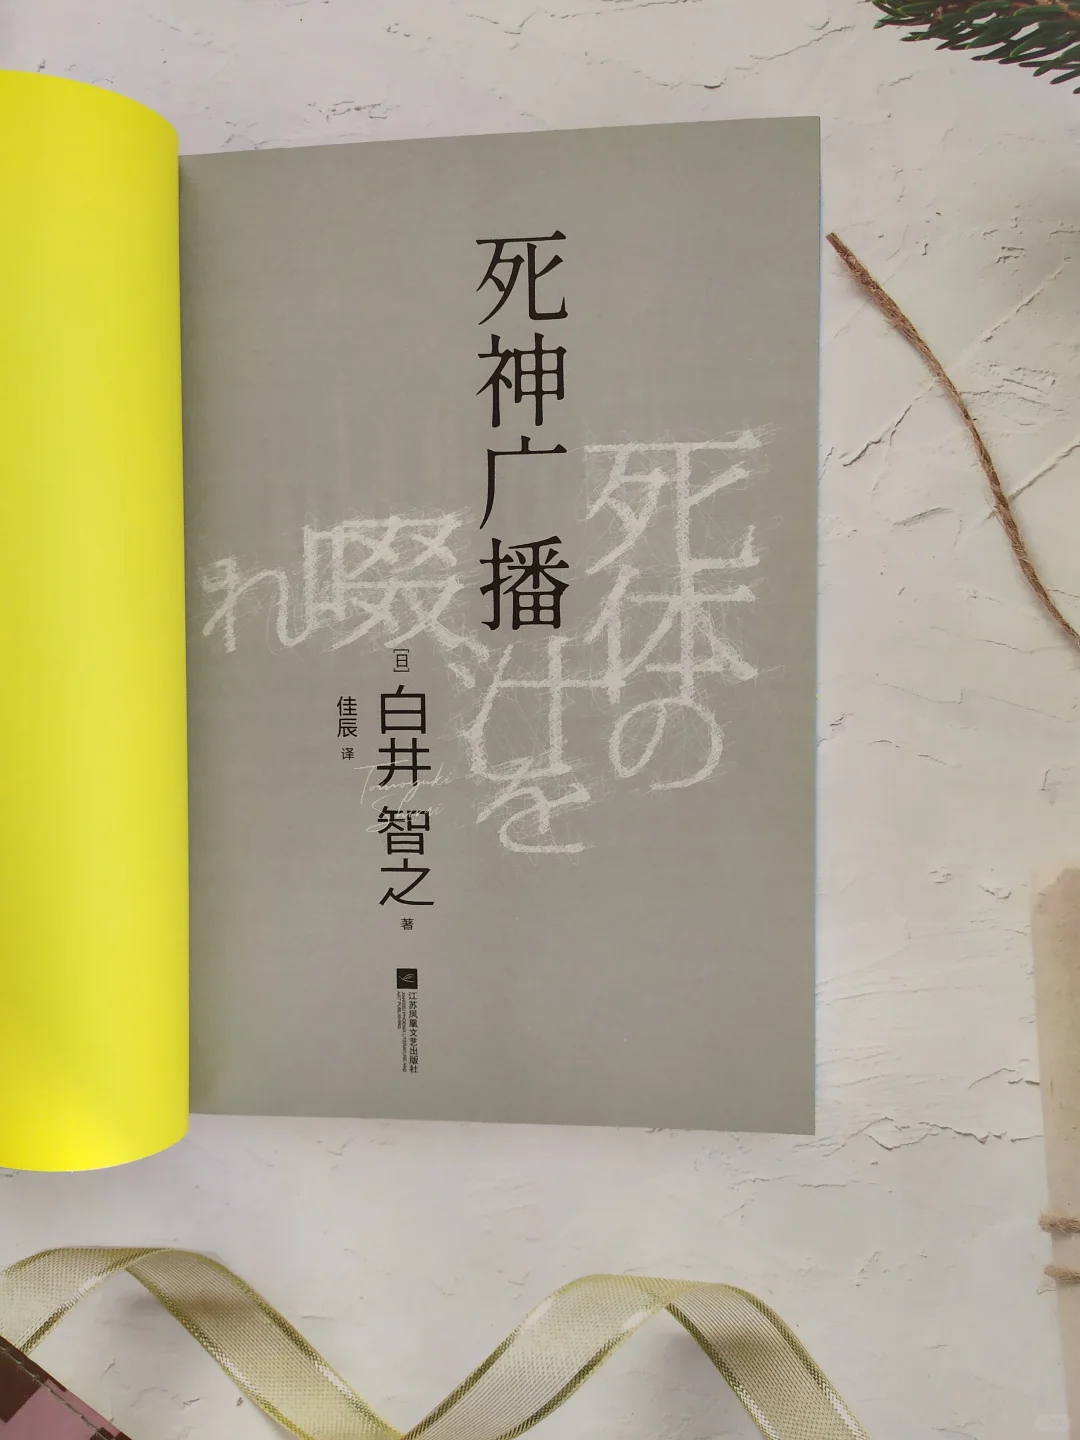 死神广播
死体の
汁を
啜れ
[日]
白井智之
著
Tomoyuki
Shirai
佳辰 译
江苏凤凰文艺出版社